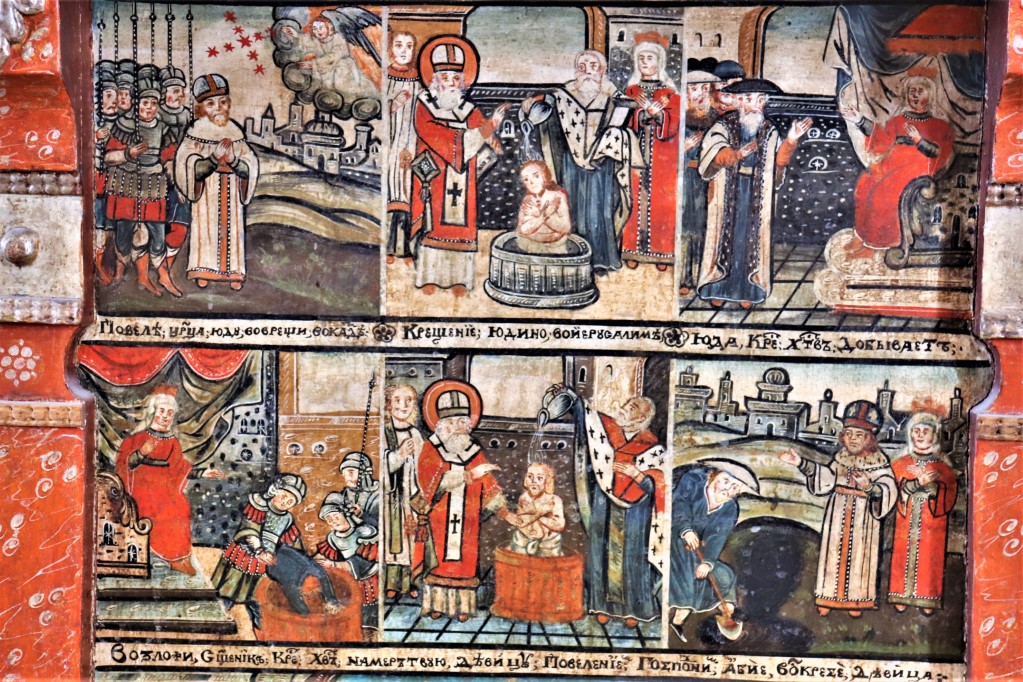 Повелѣ, ц҃рца, юду, воврещи, вокаде. Крещенїе, Юдино, войерꙋсалимѣ, Юда, Кр҃е, Хт҃въ, добываетъ,
Возложи, С҃щеникъ, Кр҃е, Хв҃ъ, намертвую, дѣвицꙋ, Повеленїе, Господни, абие, воскресе, дѣвица,